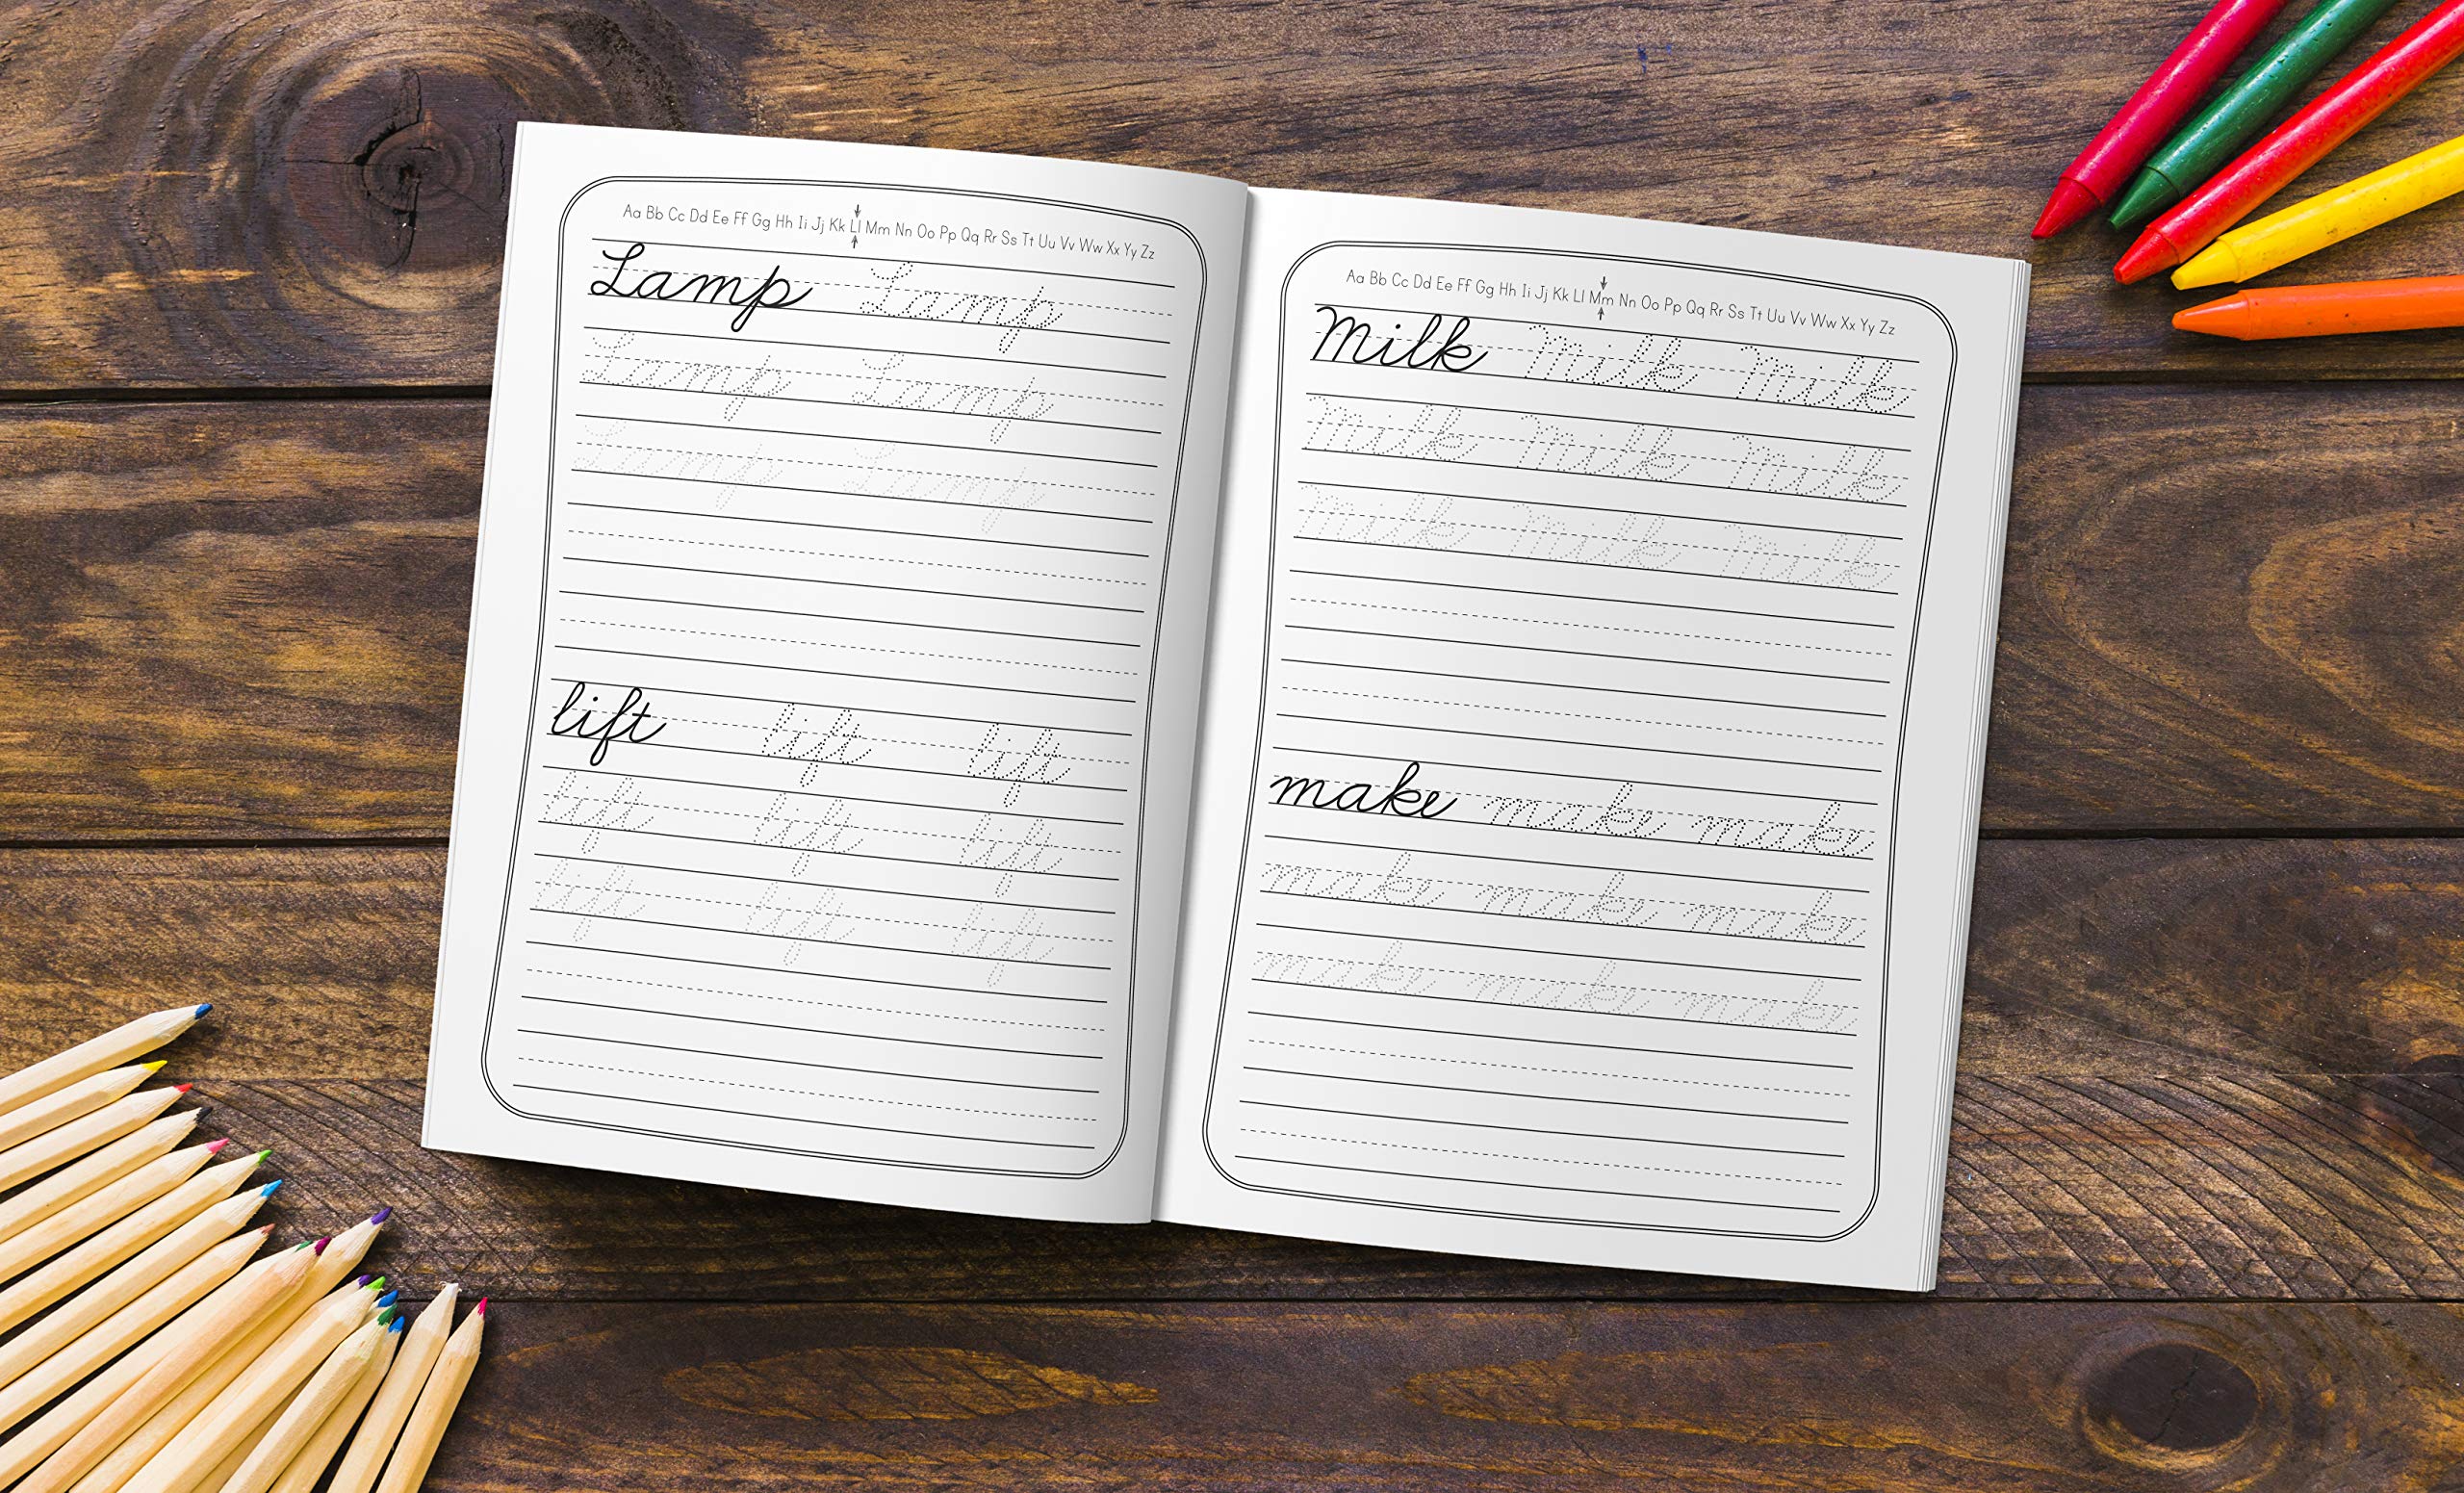 Aa Bb Cc Dd Ee Ff Gg Hh Ii Jj Kk Ll Mm Nn Oo Pp Qq Rr Ss Tt Uu Vv Ww Xx Yy Zz
Lamp Lamp
Lamp Lamp
Lamp Lamp
lift lift lift
lift lift lift
lift lift lift
Aa Bb Cc Dd Ee Ff Gg Hh Ii Jj Kk Ll Mm Nn Oo Pp Qq Rr Ss Tt Uu Vv Ww Xx Yy Zz
Milk Milk Milk
Milk Milk Milk
Milk Milk Milk
make make make
make make make
make make make